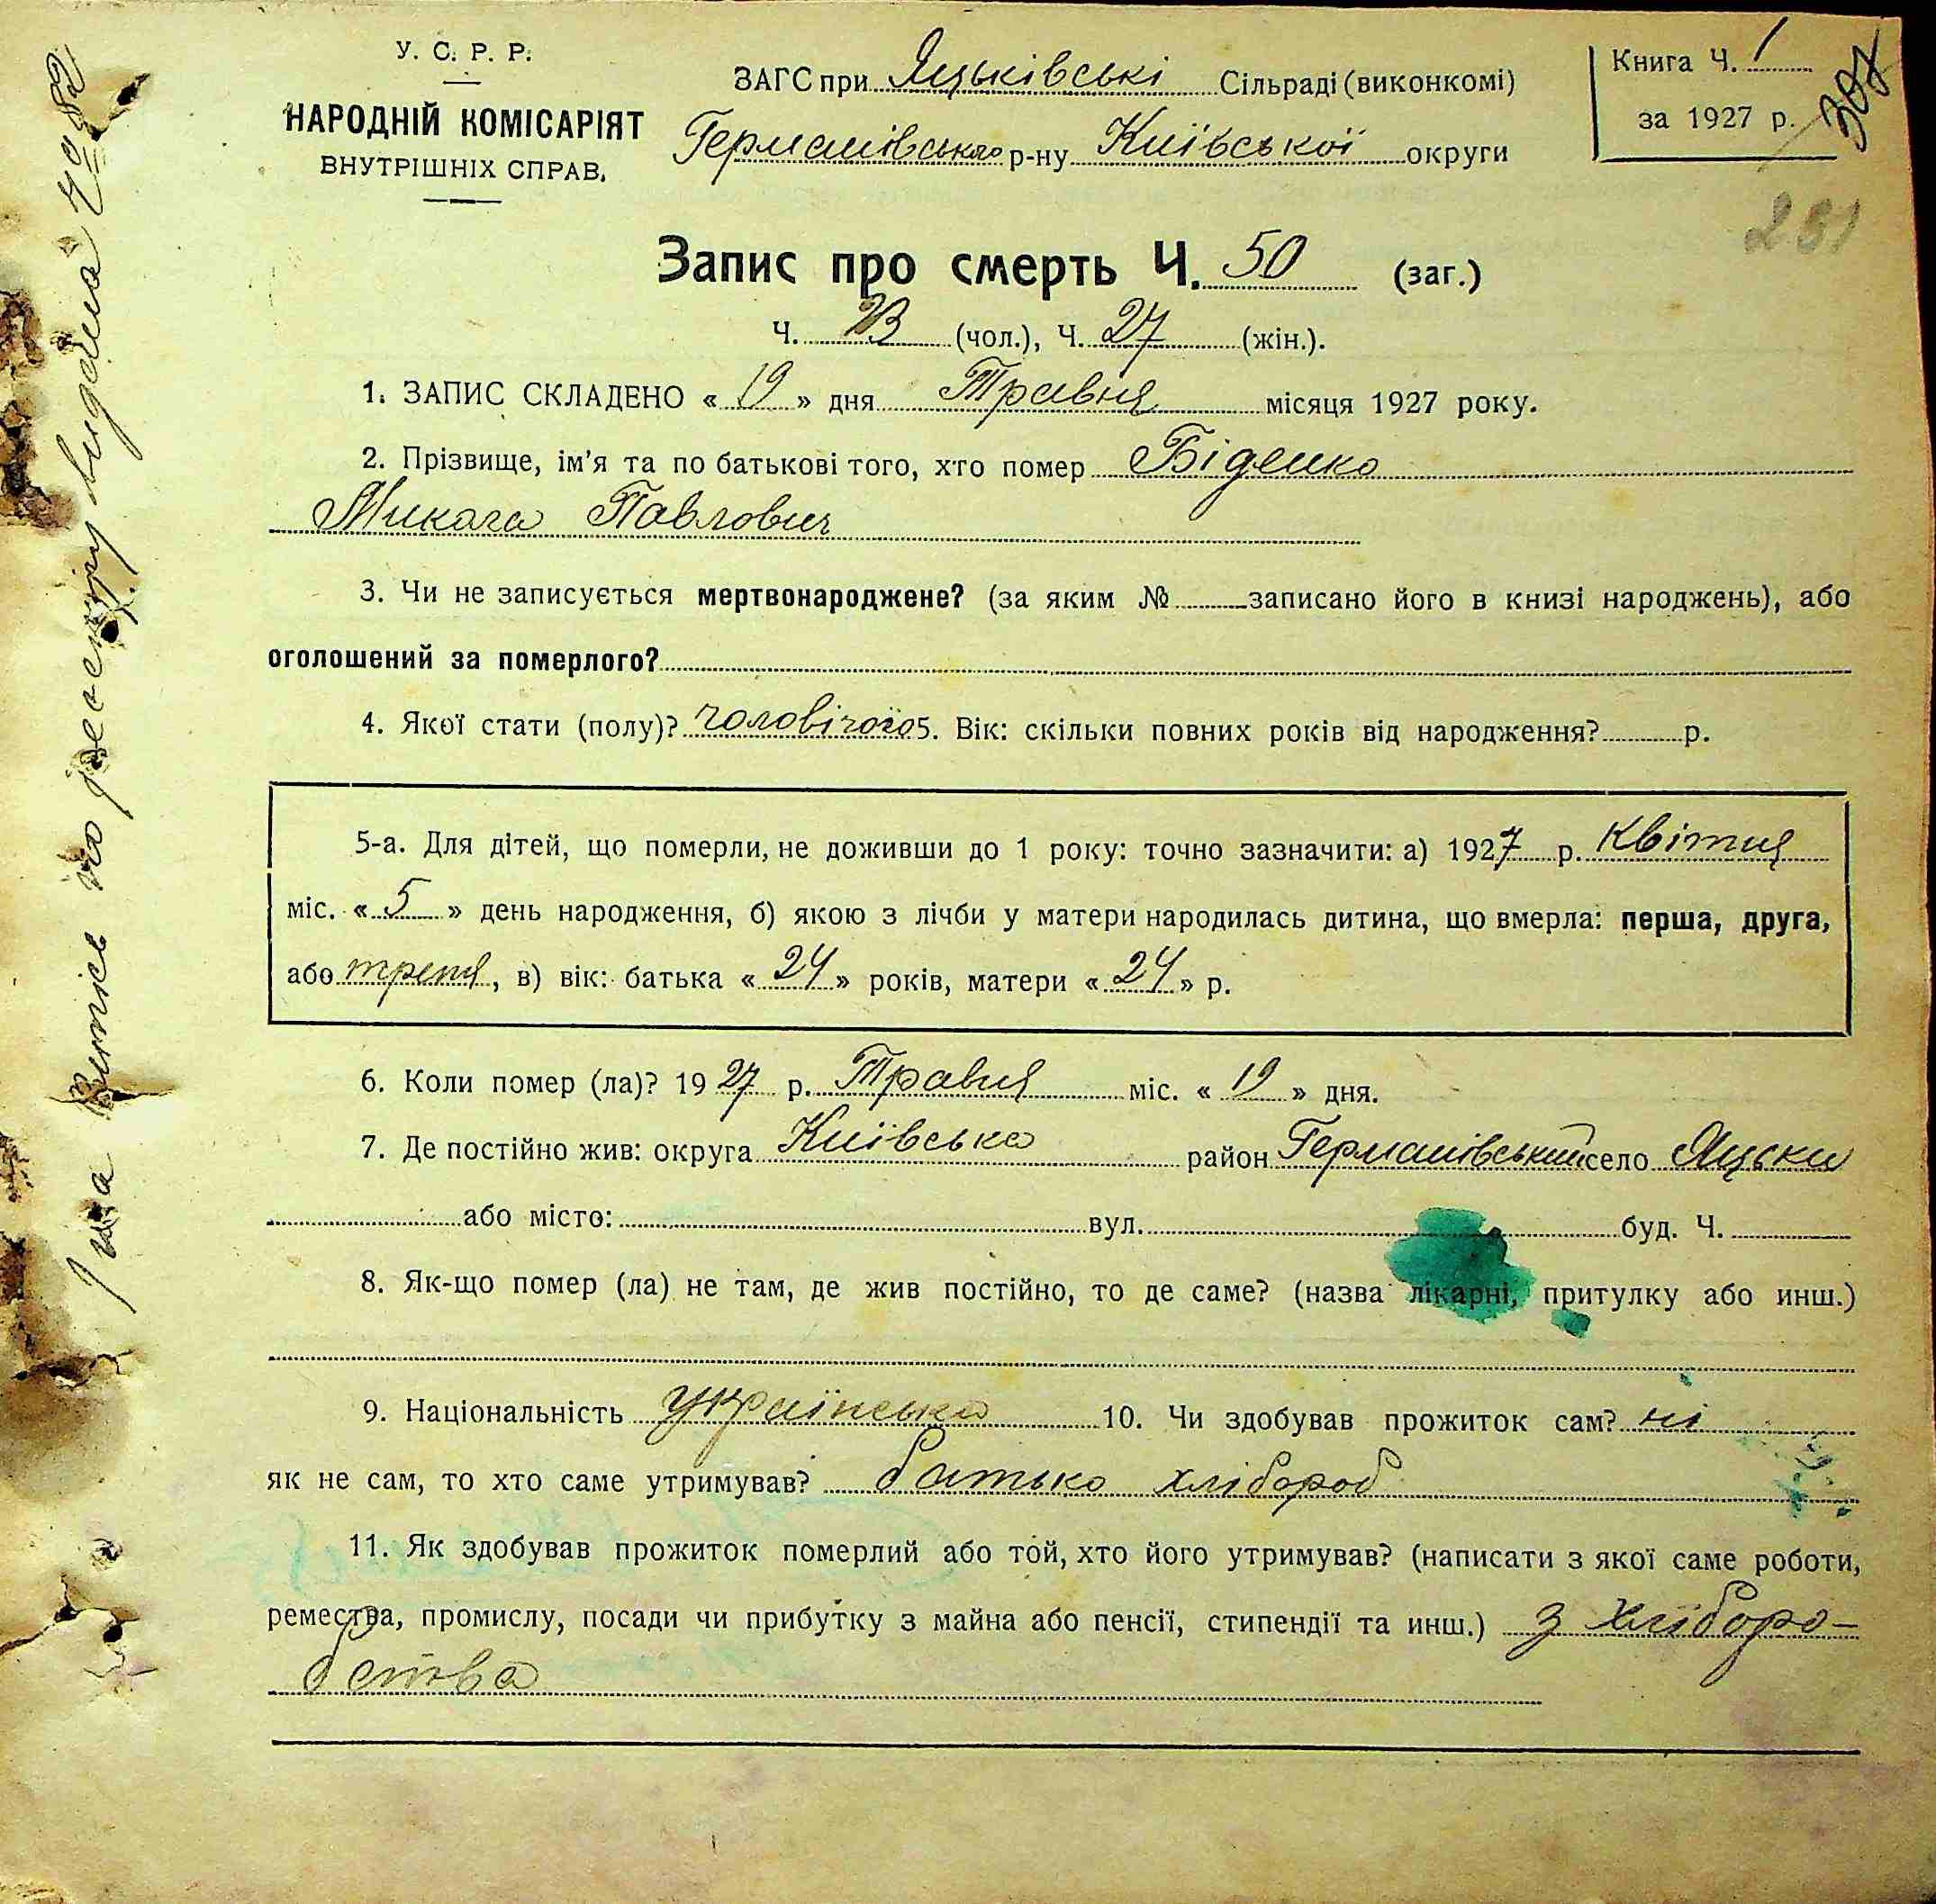 У. С. Р. Р.
НАРОДНІЙ КОМІСАРІЯТ
ВНУТРІШНІХ СПРАВ.
ЗАГС при Яцьківські Сільраді (виконкомі)
Германівського р-ну Київської округи
Книга Ч. 1
за 1927 р.
307
231
Запис про смерть Ч. 50 (заг.)
Ч. 23 (чол.), Ч. 27 (жін.).
1. ЗАПИС СКЛАДЕНО « 19 » дня Травня місяця 1927 року.
2. Прізвище, ім'я та по батькові того, хто помер Біденко
Микола Павлович
3. Чи не записується мертвонароджене? (за яким № записано його в книзі народжень), або
оголошений за померлого?
4. Якої стати (полу)? чоловічого 5. Вік: скільки повних років від народження? р.
5-а. Для дітей, що померли, не доживши до 1 року: точно зазначити: а) 1927 р. Квітня
міс. « 5 » день народження, б) якою з лічби у матери народилась дитина, що вмерла: перша, друга,
або третя, в) вік: батька « 24 » років, матери « 24 » р.
6. Коли помер (ла)? 1927 р. Травня міс. « 19 » дня.
7. Де постійно жив: округа Київська район Германівський село Яцьки
або місто: вул. буд. Ч.
8. Як-що помер (ла) не там, де жив постійно, то де саме? (назва лікарні, притулку або инш.)
9. Національність Українська 10. Чи здобував прожиток сам? ні
як не сам, то хто саме утримував? батько хлібороб
11. Як здобував прожиток померлий або той, хто його утримував? (написати з якої саме роботи,
ремества, промислу, посади чи прибутку з майна або пенсії, стипендії та инш.) З хліборо-
бства